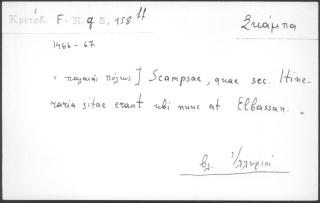 Κριτόβ. F. H. g 5, 158 ff Σκάμπα
1466-67
τ παλαιᾶς πόλεως ] Scampsae, quae sec. Itine-
raria sitae erant ubi nunc est Elbassan.
βλ. Ἰλλυριοί